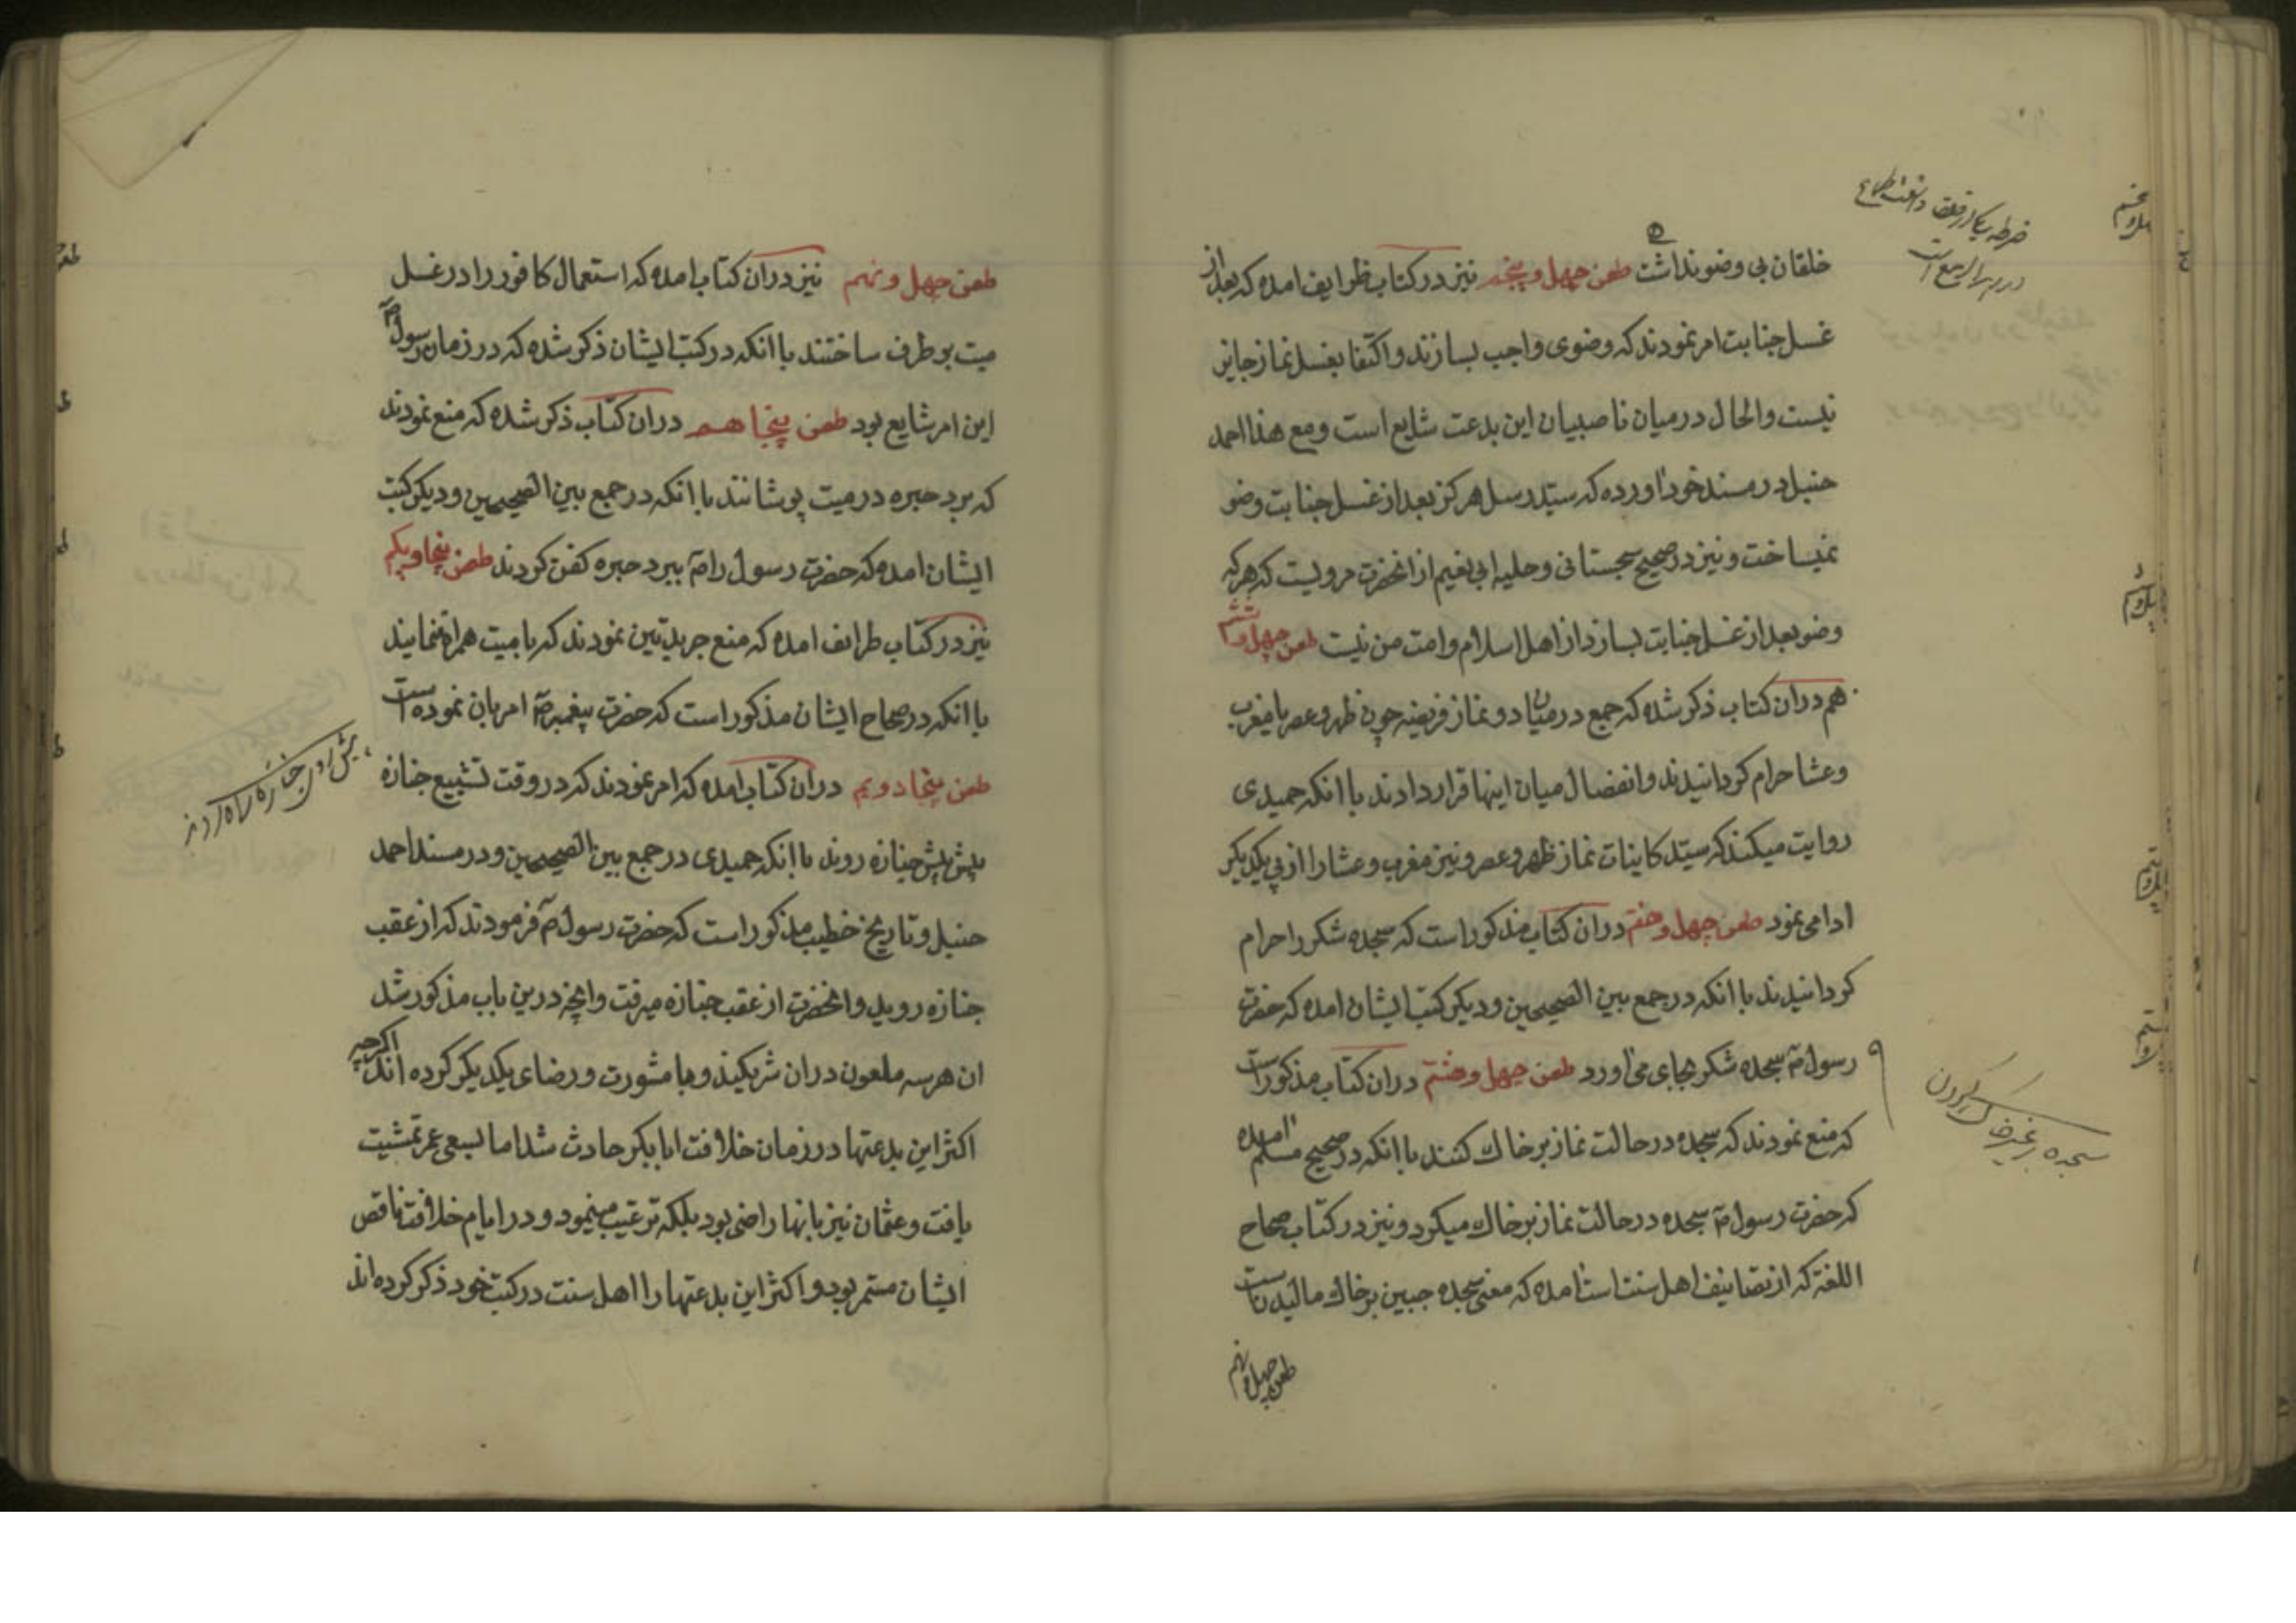 خلقان بی وضو نداشت طعن چهل و پنجم نیز در کتاب ظرایف امده که بعد از
غسل جنابت امر نمودند که وضوی واجب بسازند و اکتفا بغسل نماز جایز
نیست والحال در میان ناصبیان این بدعت شایع است و مع هذا احمد
حنبل در مسند خود اورده که سیّد رسل هرگز بعد از غسل جنابت وضو
نمیساخت و نیز در صحیح سجستانی و حلیه ابی نعیم از انحضرت مرویست که هر که
وضو بعد از غسل جنابت بسازد از اهل اسلام و امت من نیست طعن چهل و ششم
هم دران کتاب ذکر شده که جمع در میان دو نماز فریضه چون ظهر و عصر یا مغرب
و عشا حرام کردانیدند و انفصال میان اینها قرار دادند با انکه حمیدی
روایت میکند که سیّد کاینات نماز ظهر و عصر و نیز مغرب و عشا را از پی یکدیکر
ادا می نمود طعن چهل و هفتم دران کتاب مذکور است که سجده شکر را حرام
کردانیدند با انکه در جمع بین الصحیحین و دیکر کتب ایشان امده که حضرت
رسول ص سجده شکر بجای می اورد طعن چهل و هشتم دران کتاب مذکور است
که منع نمودند که سجده در حالت نماز بر خاک کنند با انکه در صحیح مسلم امده
که حضرت رسول ص سجده در حالت نماز بر خاک میکرد و نیز در کتاب صحاح
اللغة که از تصانیف اهل سنت است امده که معنی سجده جبین بر خاک مالیدنست
طعن چهل و نهم
سجده بر غیر خاک کردن
طعن چهل و نهم نیز دران کتاب امده که استعمال کافور را در غسل
میت بر طرف ساختند با انکه در کتب ایشان ذکر شده که در زمان رسول ص
این امر شایع بود طعن پنجاهم دران کتاب ذکر شده که منع نمودند
که برد حبره در میت پوشانند با انکه در جمع بین الصحیحین و دیکر کتب
ایشان امده که حضرت رسول را ص ببرد حبره کفن کردند طعن پنجاه و یکم
نیز در کتاب طرائف امده که منع جریدتین نمودند که با میت همراه ننمایند
با انکه در صحاح ایشان مذکور است که حضرت پیغمبر ص امر بان نموده است
طعن پنجاه دویم دران کتاب امده که امر نمودند که در وقت تشییع جنازه
پیش پیش جنازه روند با انکه حمیدی در جمع بین الصحیحین و در مسند احمد
حنبل و تاریخ خطیب مذکور است که حضرت رسول ص فرمودند که از عقب
جنازه روید و انحضرت از عقب جنازه میرفت و انچه درین باب مذکور شد
ان هر سه ملعون دران شریکند و با مشورت و رضای یکدیکر کرده اند اکرچه
اکثر این بدعتها در زمان خلافت ابابکر حادث شد اما بسعی عمر تمشیت
یافت و عثمان نیز بانها راضی بود بلکه ترغیب مینمود و در ایام خلافت ناقص
ایشان مستمر بود و اکثر این بدعتها را اهل سنت در کتب خود ذکر کرده اند